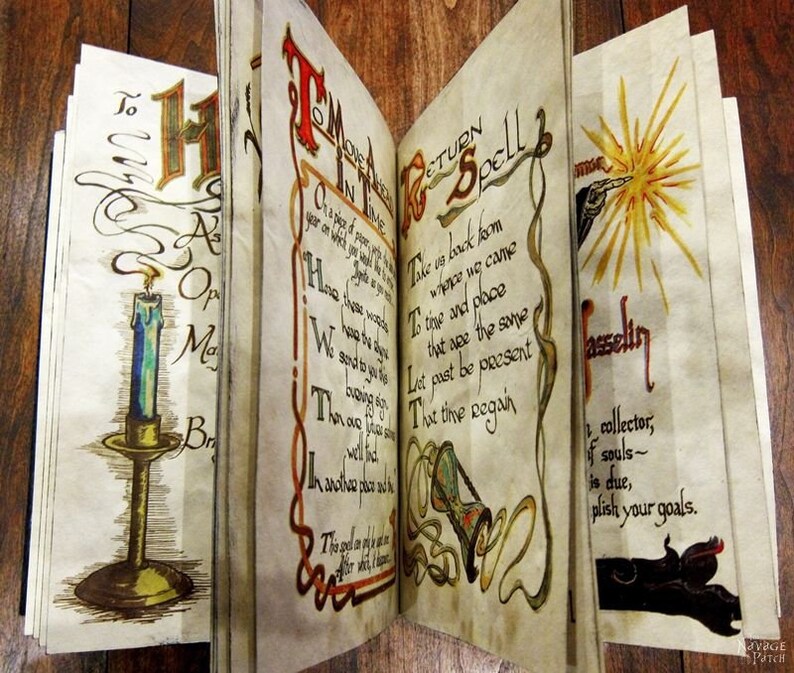 To
H
As
Ope
Ma
Br
To Move Ahead
In Time
On a piece of paper, write the
year on which you would like to
Ignite as you
"Hear these words,
hear the rhyme
We send to you this
burning sign
Then our future selves
we'll find
In another place and time"
This spell can only be used once
After which, it
Return
Spell
Take us back from
whence we came
To time and place
that are the same
Let past be present
That time regain
asselin
collector,
of souls~
is due,
plish your goals.
Navage
Patch